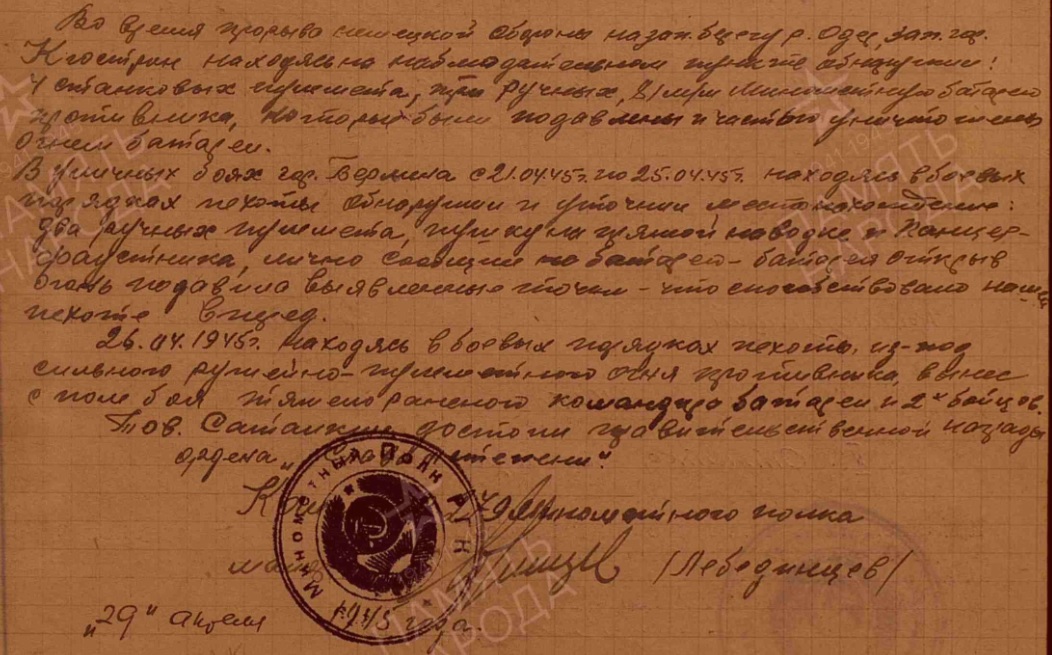 Во время прорыва немецкой обороны на зап. берегу р. Одер, зап. гор.
Кюстрин находясь на наблюдательном пункте обнаружил:
4 станковых пулемета, три ручных, 81 м/м минометную батарею
противника, которые были подавлены и частью уничтожены
огнем батареи.
В уличных боях гор. Берлина с 21.04.45г. по 25.04.45г. находясь в боевых
порядках пехоты обнаружил и уточнил местонахождение:
два ручных пулемета, пушку на прямой наводке и Панцер-
фаустника, лично сообщил на батарею - батарея открыв
огонь подавила выявленные точки - что способствовало нашей
пехоте вперед.
26.04.1945г. находясь в боевых порядках пехоты, из-под
сильного ружейно-пулеметного огня противника, вынес
с поля боя тяжело раненого командира батареи и 2х бойцов.
Тов. достоин правительственной награды
ордена „ степени".
минометного полка
/Лебединцев/
„29" апреля 1945 года.
Минометный Полк РГК
ПАМЯТЬ
НАРОДА
1941-1945